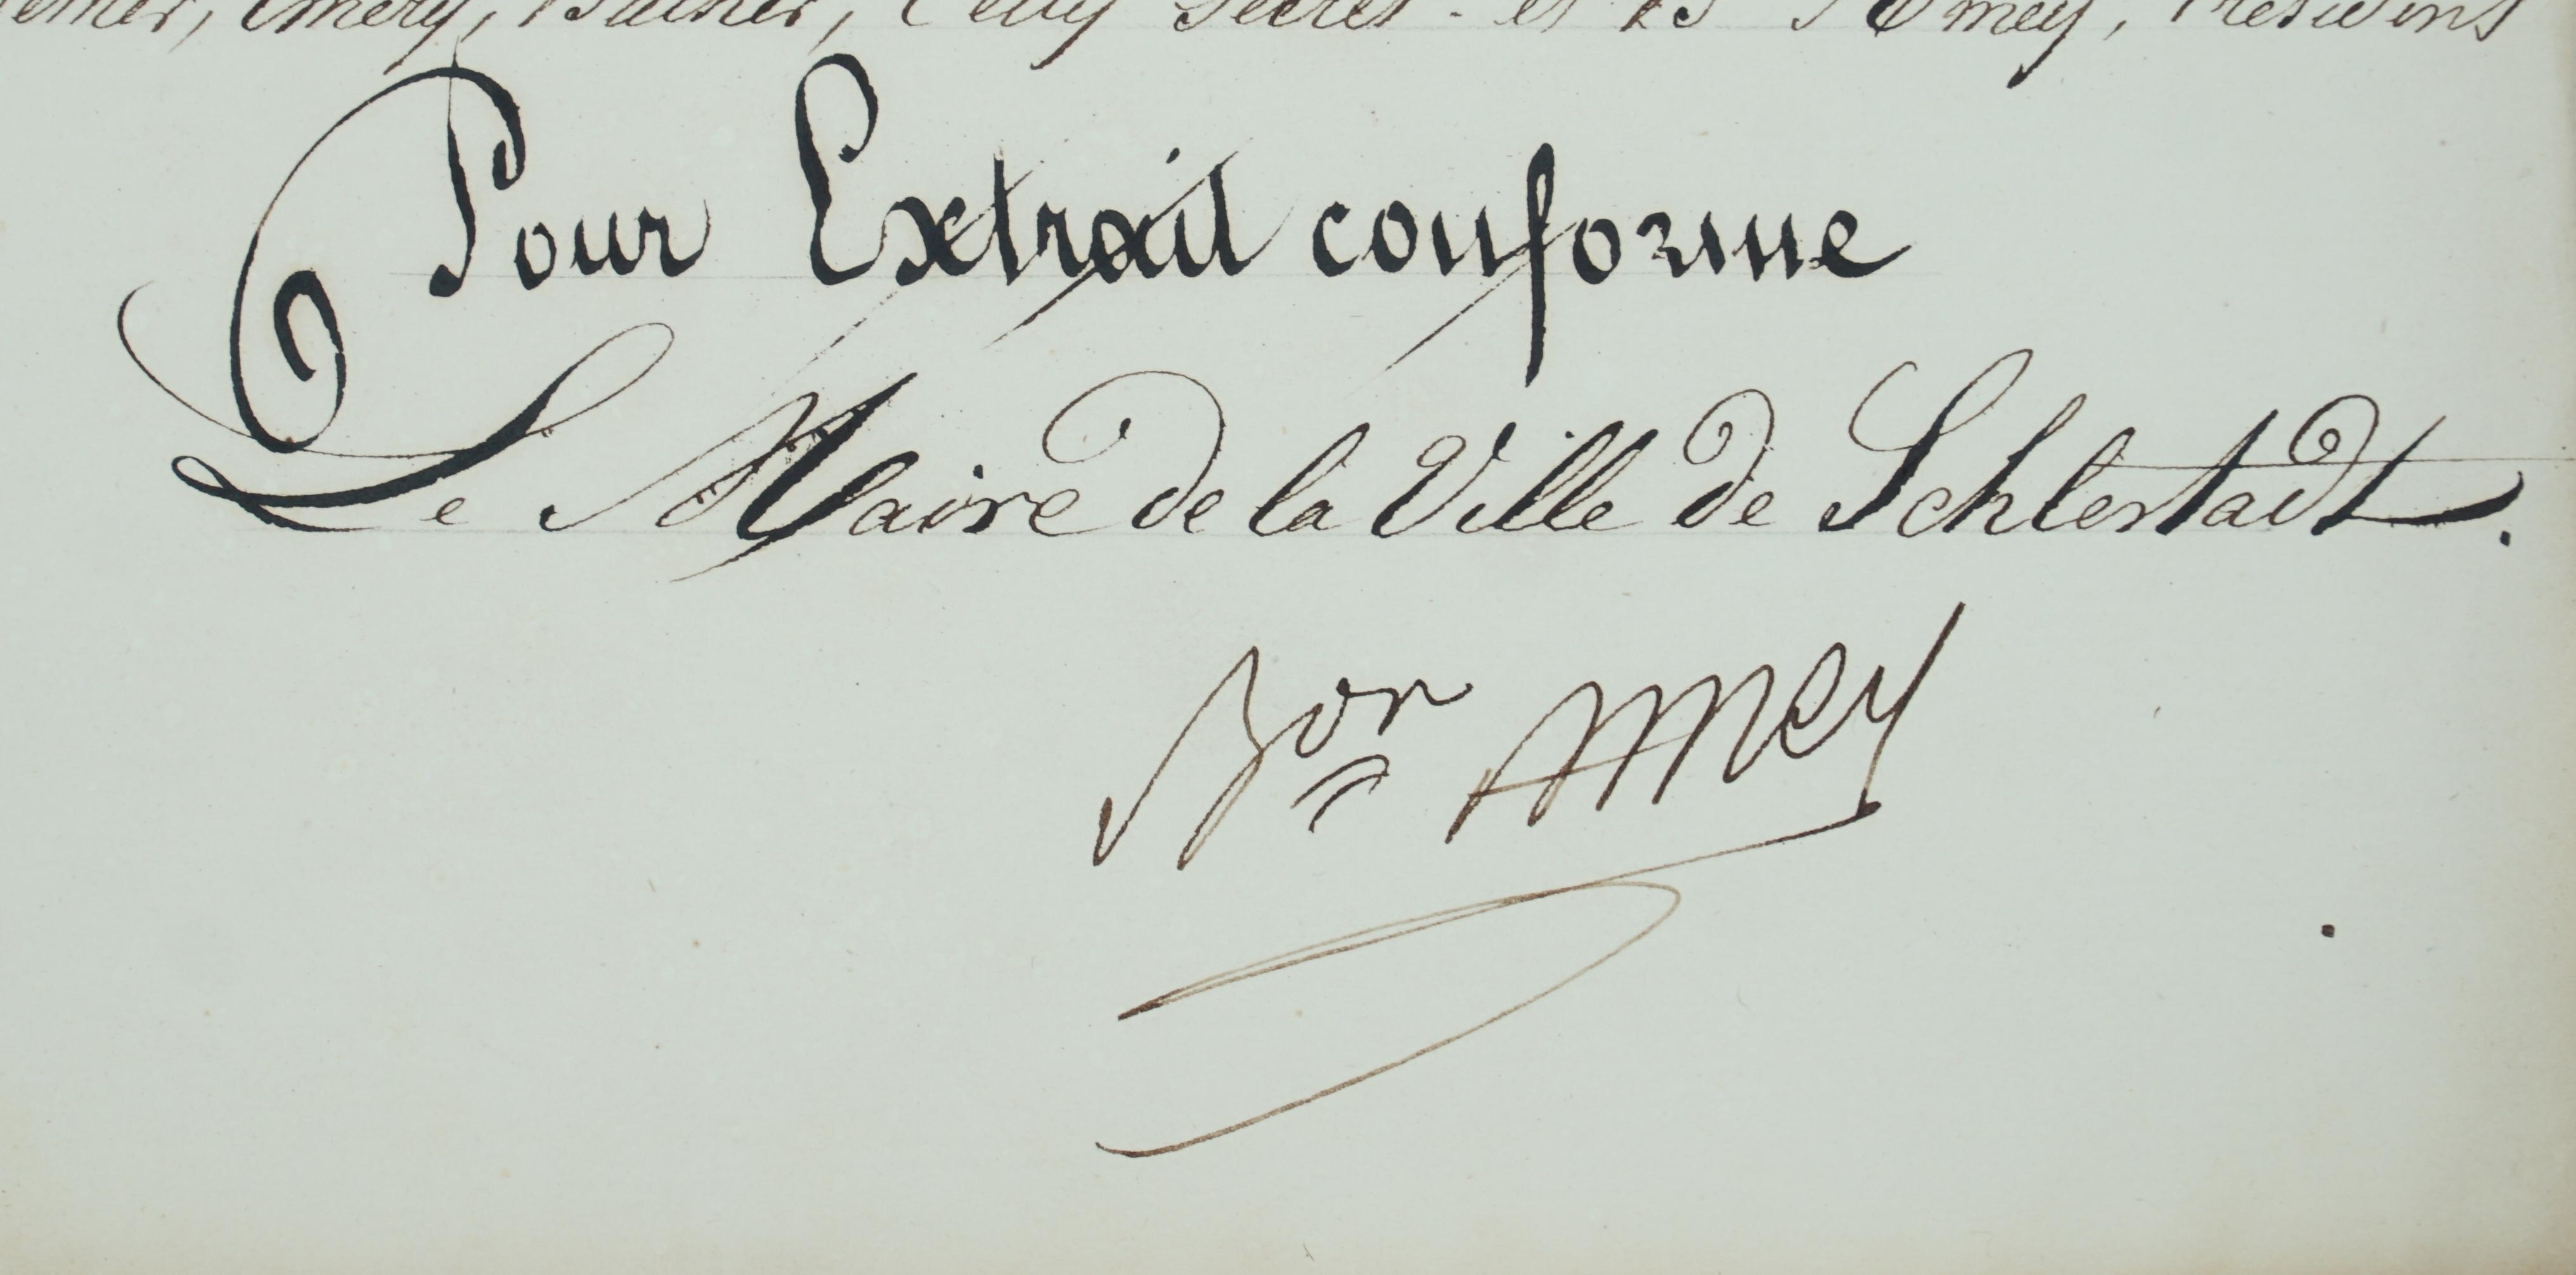 Emery, Bucher, Secret. et Bon Amey, Président
Pour Extrait conforme
Le Maire de la Ville de Schlestadt.
Bon Amey